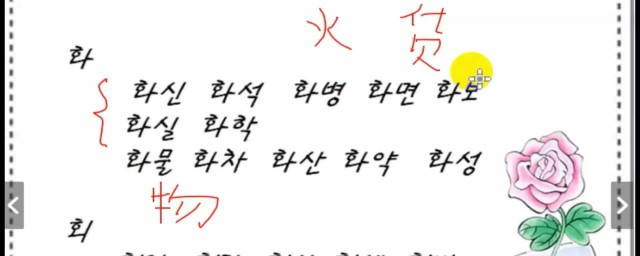 火 货
화
화신 화석 화병 화면 화보
화실 화학
화물 화차 화산 화약 화성
物
회